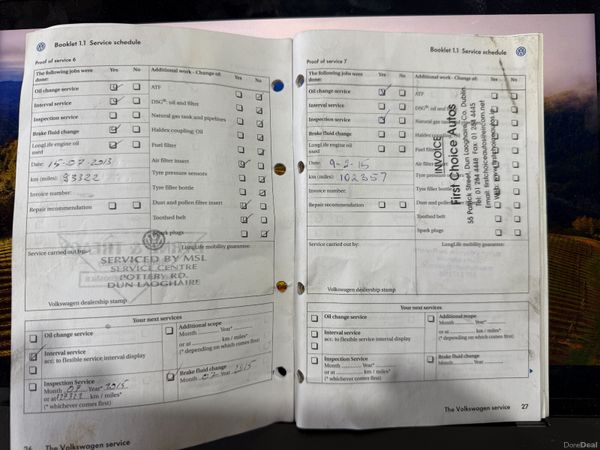 Booklet 1.1 Service schedule
Proof of service 6
The following jobs were done: Yes No Additional work - Change of: Yes No
Oil change service ATF
Interval service DSG®: oil and filter
Inspection service Natural gas tank and pipelines
Brake fluid change Haldex coupling: Oil
LongLife engine oil used Fuel filter
Date: 15-07-2013 Air filter insert
km (miles): 93322 Tyre pressure sensors
Invoice number: Tyre filler bottle
Repair recommendation Dust and pollen filter insert
Toothed belt
Spark plugs
Service carried out by: LongLife mobility guarantee:
SERVICED BY MSL
SERVICE CENTRE
POTTERY RD
DUN LAOGHAIRE
Volkswagen dealership stamp
Your next services
Oil change service Additional scope
Month Year*
Interval service or at km / miles*
acc: to flexible service interval display (* depending on which comes first)
or
Inspection Service Brake fluid change
Month 07 Year* 2015 Month 07 Year 2015
or at km / miles*
(* whichever comes first)
26 The Volkswagen service
Booklet 1.1 Service schedule
Proof of service 7
The following jobs were done: Yes No Additional work - Change of: Yes No
Oil change service ATF
Interval service DSG®: oil and
Inspection service Natural gas
Brake fluid change Haldex coupling
LongLife engine oil used Fuel filter
Date: 9-2-15 Air filter
km (miles): 102357 Tyre pressure
Invoice number: Tyre filler bottle
Repair recommendation Dust and pollen
Toothed belt
Spark plugs
INVOICE
First Choice Autos
55 Patrick Street, Dun Laoghaire, Co. Dublin
Tel: 01 284 4448 Fax: 01 284 4445
Email: firstchoiceautos@eircom.net
Service carried out by: LongLife mobility guarantee:
Volkswagen dealership stamp
Your next services
Oil change service Additional scope
Month Year*
Interval service or at km / miles*
acc: to flexible service interval display (* depending on which comes first)
or
Inspection Service Brake fluid change
Month Year* Month Year
or at km / miles*
(* whichever comes first)
The Volkswagen service 27
DoneDeal